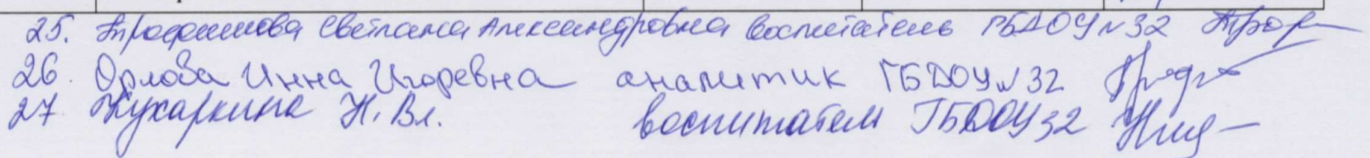 25. Трофимова Светлана Александровна воспитатель ГБДОУ №32
26. Орлова Инна Игоревна аналитик ГБДОУ №32
27 Кухаркина Н. Вл. воспитатель ГБДОУ 32